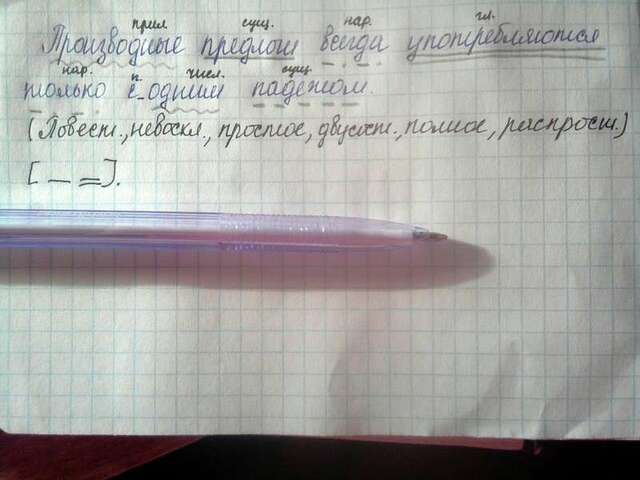 прил сущ. нар. гл.
Производные предлоги всегда употребляются
нар. п. числ. сущ.
только с одним падежом.
(Повест., невоскл., простое, двусост., полное, распрост.)
[ — = ].